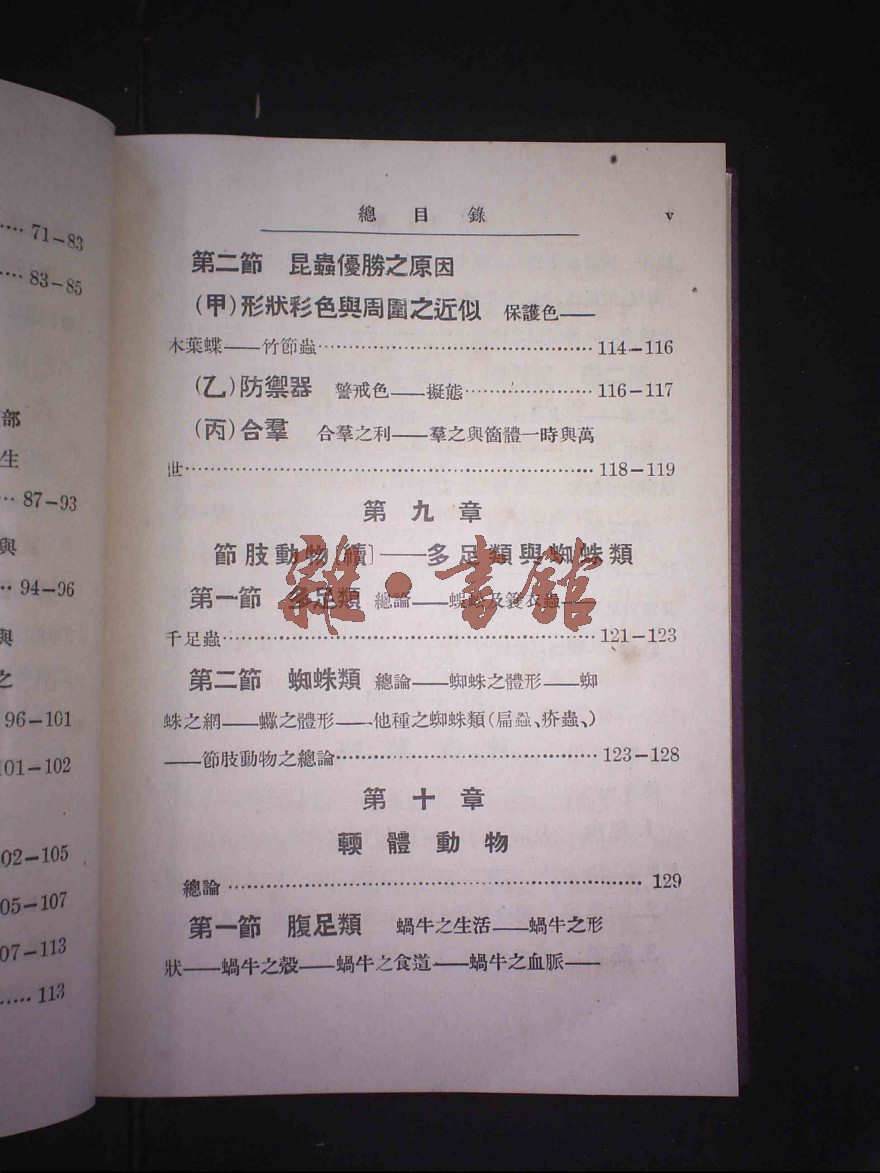 71–83
83–85
部
生
87–93
與
94–96
與
之
96–101
101–102
102–105
105–107
107–113
113
總目錄 v
第二節 昆蟲優勝之原因
(甲)形狀彩色與周圍之近似 保護色——
木葉蝶——竹節蟲……114–116
(乙)防禦器 警戒色——擬態……116–117
(丙)合羣 合羣之利——羣之與箇體一時與萬
世……118–119
第九章
節肢動物〔續〕——多足類與蜘蛛類
第一節 多足類 總論——蜈蚣及簑衣蟲——
千足蟲……121–123
第二節 蜘蛛類 總論——蜘蛛之體形——蜘
蛛之網——蠍之體形——他種之蜘蛛類(扁蝨、疥蟲、)
——節肢動物之總論……123–128
第十章
輭體動物
總論……129
第一節 腹足類 蝸牛之生活——蝸牛之形
狀——蝸牛之殼——蝸牛之食道——蝸牛之血脈——
雜·書館